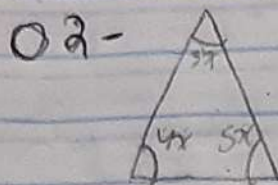 02-
3x
4x 5x